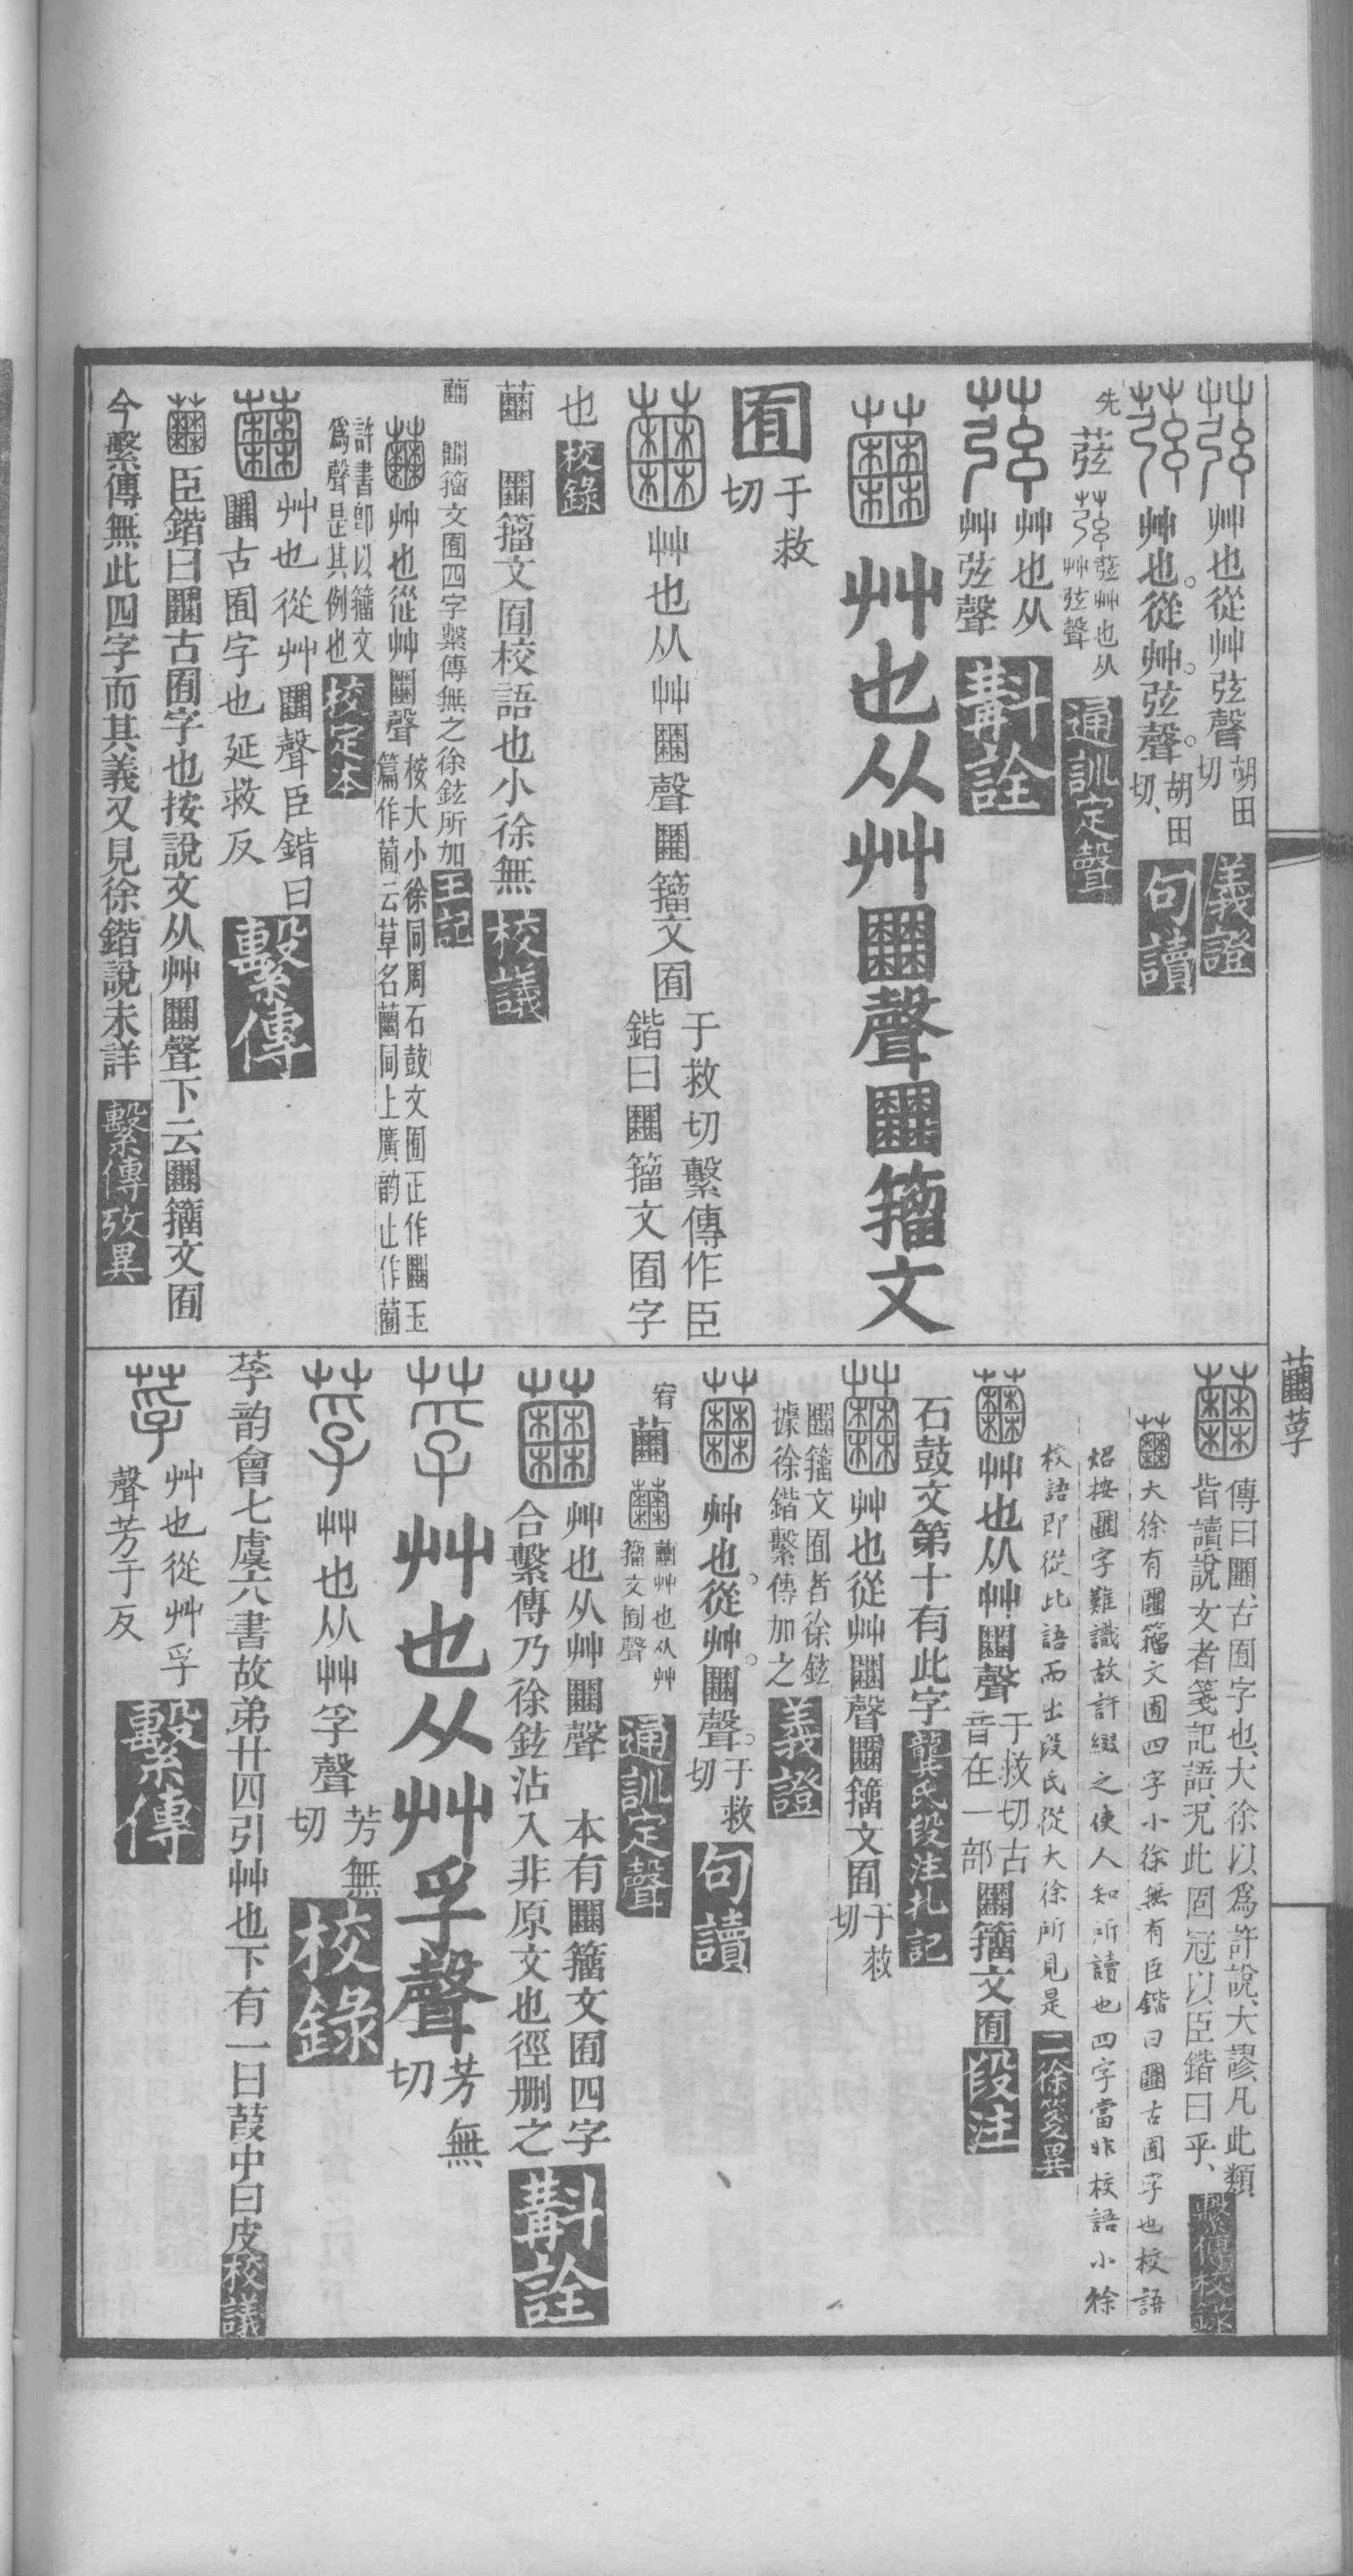 艸也從艸弦聲胡田切義證
艸也。從艸。弦聲。胡田切、句讀
先 莀艸也从艸弦聲通訓定聲
艸也从艸弦聲斠詮
艸也从艸𡈹聲𡈹籀文
囿于救切
艸也从艸𡈹聲𡈹籀文囿于救切繫傳作臣鍇曰𡈹籀文囿字
也校錄
𧃲 𡈹籀文囿校語也小徐無校議
𧃲 𡈹籀文囿四字繫傳無之徐鉉所加王記
艸也從艸𡈹聲桉大小徐同周石鼓文囿正作𡈹玉篇作䔰云草名𧃲同上廣韵止作䔰
許書卽以籀文爲聲是其例也校定本
艸也從艸𡈹聲臣鍇曰𡈹古囿字也延救反繫傳
臣鍇曰𡈹古囿字也按說文从艸𡈹聲下云𡈹籀文囿
今繫傳無此四字而其義又見徐鍇說未詳繫傳攷異
𧃲莩
傳曰𡈹、古囿字也、大徐以爲許說、大謬、凡此類皆讀說文者箋記語、況此固冠以、臣鍇曰乎、繫傳校錄
大徐有𡈹籀文囿四字小徐無有臣鍇曰𡈹古囿字也校語
炤桉𡈹字難識故許綴之使人知所讀也四字當非校語小徐
校語卽從此語而出段氏從大徐所見是二徐箋異
艸也从艸𡈹聲于救切古音在一部𡈹籀文囿段注
石鼓文第十有此字龔氏段注札記
艸也從艸𡈹聲𡈹籀文囿于救切
𡈹籀文囿者徐鉉據徐鍇繫傳加之義證
艸也。從艸。𡈹聲。于救切句讀
宥 𧃲艸也从艸籀文囿聲通訓定聲
艸也从艸𡈹聲 本有𡈹籀文囿四字合繫傳乃徐鉉沾入非原文也徑删之斠詮
艸也从艸孚聲芳無切
艸也从艸孚聲芳無切校錄
莩韵會七虞六書故弟廿四引艸也下有一曰葭中曰皮校議
艸也從艸孚聲芳于反繫傳